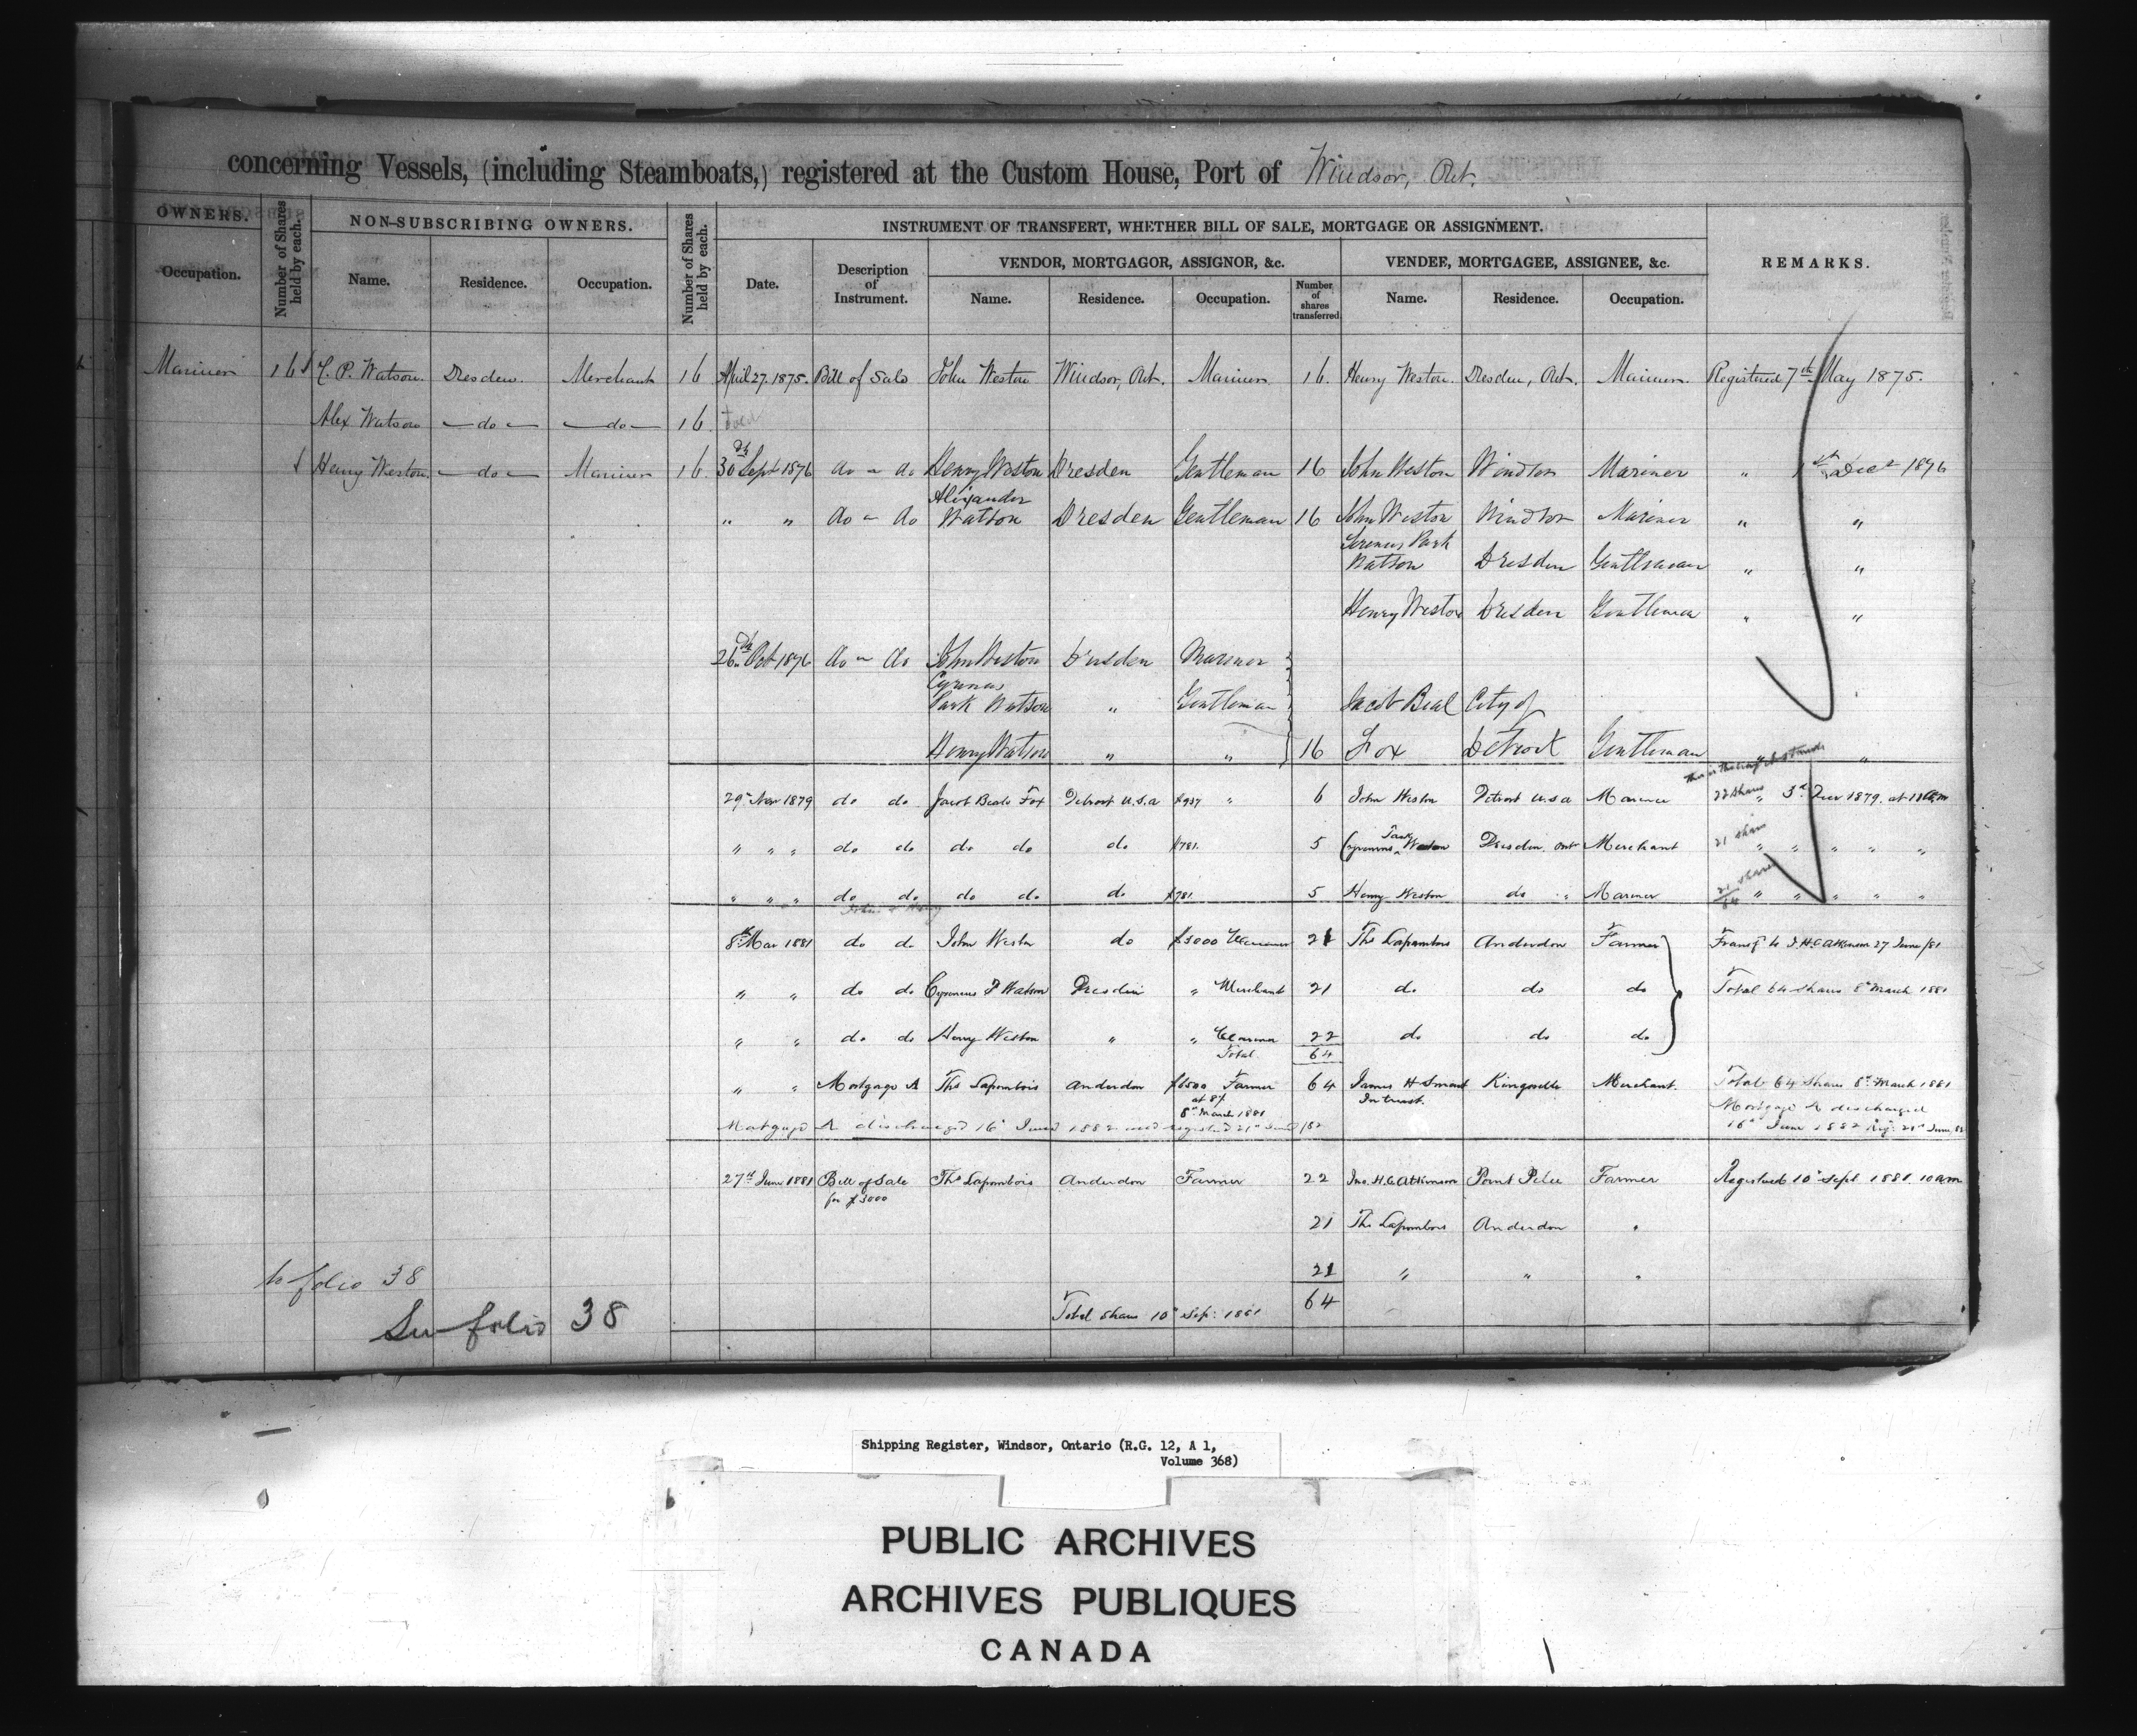 concerning Vessels, (including Steamboats,) registered at the Custom House, Port of Windsor, Ont.
OWNERS. Number of Shares held by each. NON-SUBSCRIBING OWNERS. Number of Shares held by each. INSTRUMENT OF TRANSFERT, WHETHER BILL OF SALE, MORTGAGE OR ASSIGNMENT. REMARKS.
VENDOR, MORTGAGOR, ASSIGNOR, &c. VENDEE, MORTGAGEE, ASSIGNEE, &c.
Occupation. Name. Residence. Occupation. Date. Description of Instrument. Name. Residence. Occupation. Number of shares transferred. Name. Residence. Occupation.
Mariner 16 C. P. Watson. Dresden. Merchant 16 April 27. 1875. Bill of Sale John Weston Windsor, Ont. Mariner 16. Henry Weston. Dresden, Ont. Mariner. Registered 7th May 1875.
Alex Watson — do — — do — 16.
Henry Weston. — do — Mariner 16. 30th Sept 1876 do - do Henry Weston Dresden Gentleman 16 John Weston Windsor Mariner " 1st Dec 1876
" " do - do Alexander Watson Dresden Gentleman 16 John Weston Windsor Mariner " "
Watson Dresden Gentleman " "
Henry Weston Dresden Gentleman " "
26th Oct 1876 do - do John Weston Dresden Mariner
Cyrenus
Park Watson " Gentleman Jacob Beal City of
Henry Watson " " 16 Fox Detroit Gentleman "
29 Nov 1879 do do Jacob Beal Fox Detroit U.S.A $937 " 6 John Weston Detroit U.S.A Mariner 22 Shares 3rd Dec 1879. at 11 am
" " " do do do do do $781. 5 Cyrenus Park Watson Dresden Ont Merchant 21 Shares " " " " "
" " " do do do do do $781 5 Henry Weston do " Mariner 21/64 Shares " " " " "
8th Mar 1881 do do John Weston do $3000 Mariner 21 Thos Lapombois Anderdon Farmer Transfd to J. H. C. Atkinson 27 June /81
" " do do Cyrenus P Watson Dresden " Merchant 21 do do do Total 64 Shares 8th March 1881
" " do do Henry Weston " " Mariner 22 do do do
Total 64
" " Mortgage A Thos Lapombois Anderdon $1500 Farmer 64 James H Smart Kingsville Merchant. Total 64 Shares 8th March 1881
at 8% In trust. Mortgage A discharged
8th March 1881
Mortgage A discharged 16th June 1882 and registered 21st June /82 16th June 1882 Reg: 21st June, 82
27th June 1881 Bill of Sale Thos Lapombois Anderdon Farmer 22 Jno. H. C. Atkinson Point Pelee Farmer Registered 10th Sept 1881. 10 am
for $3000
21 Thos Lapombois Anderdon "
to folio 38 21 " " "
Total share 10th Sep: 1881 64
See folio 38
Shipping Register, Windsor, Ontario (R.G. 12, A 1,
Volume 368)
PUBLIC ARCHIVES
ARCHIVES PUBLIQUES
CANADA